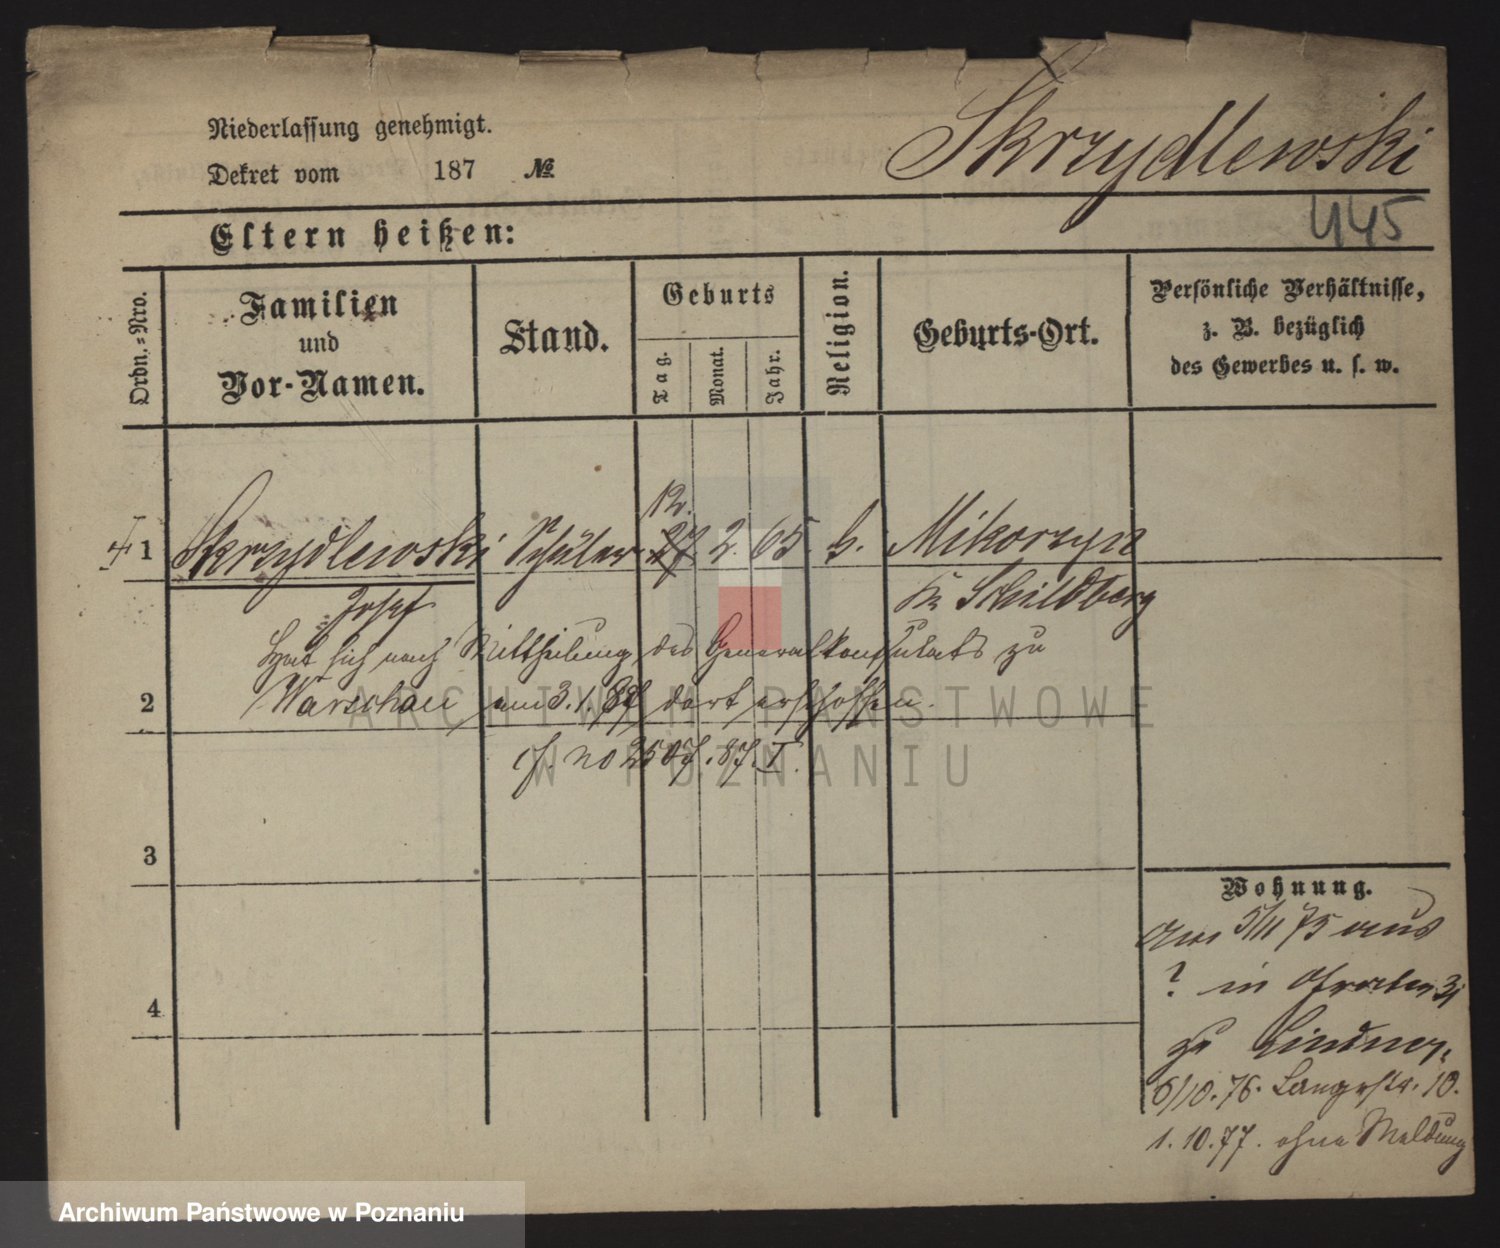 Niederlassung genehmigt.
Dekret vom 187 №
Skrzydlewski
445
Eltern heißen:
Ordn.-Nro.
Familien
und
Vor-Namen.
Stand.
Geburts
Tag.
Monat.
Jahr.
Religion.
Geburts-Ort.
Persönliche Verhältnisse,
z. B. bezüglich
des Gewerbes u. s. w.
1 Skrzydlewski Schüler 12. 27 2. 65. k. Mikorzyn
Josef
Kr Schildberg
Hat sich nach Mittheilung des Generalkonsulats zu
2 Warschau am 3. 1. 87 dort erschossen.
cf. no 2507. 87. I.
3
4
Wohnung.
am 5/11 75 aus
? in 31
zu Lindner,
6/10. 76. Langestr. 10.
1. 10. 77. ohne Meldung
ARCHIWUM PAŃSTWOWE
W POZNANIU
Archiwum Państwowe w Poznaniu